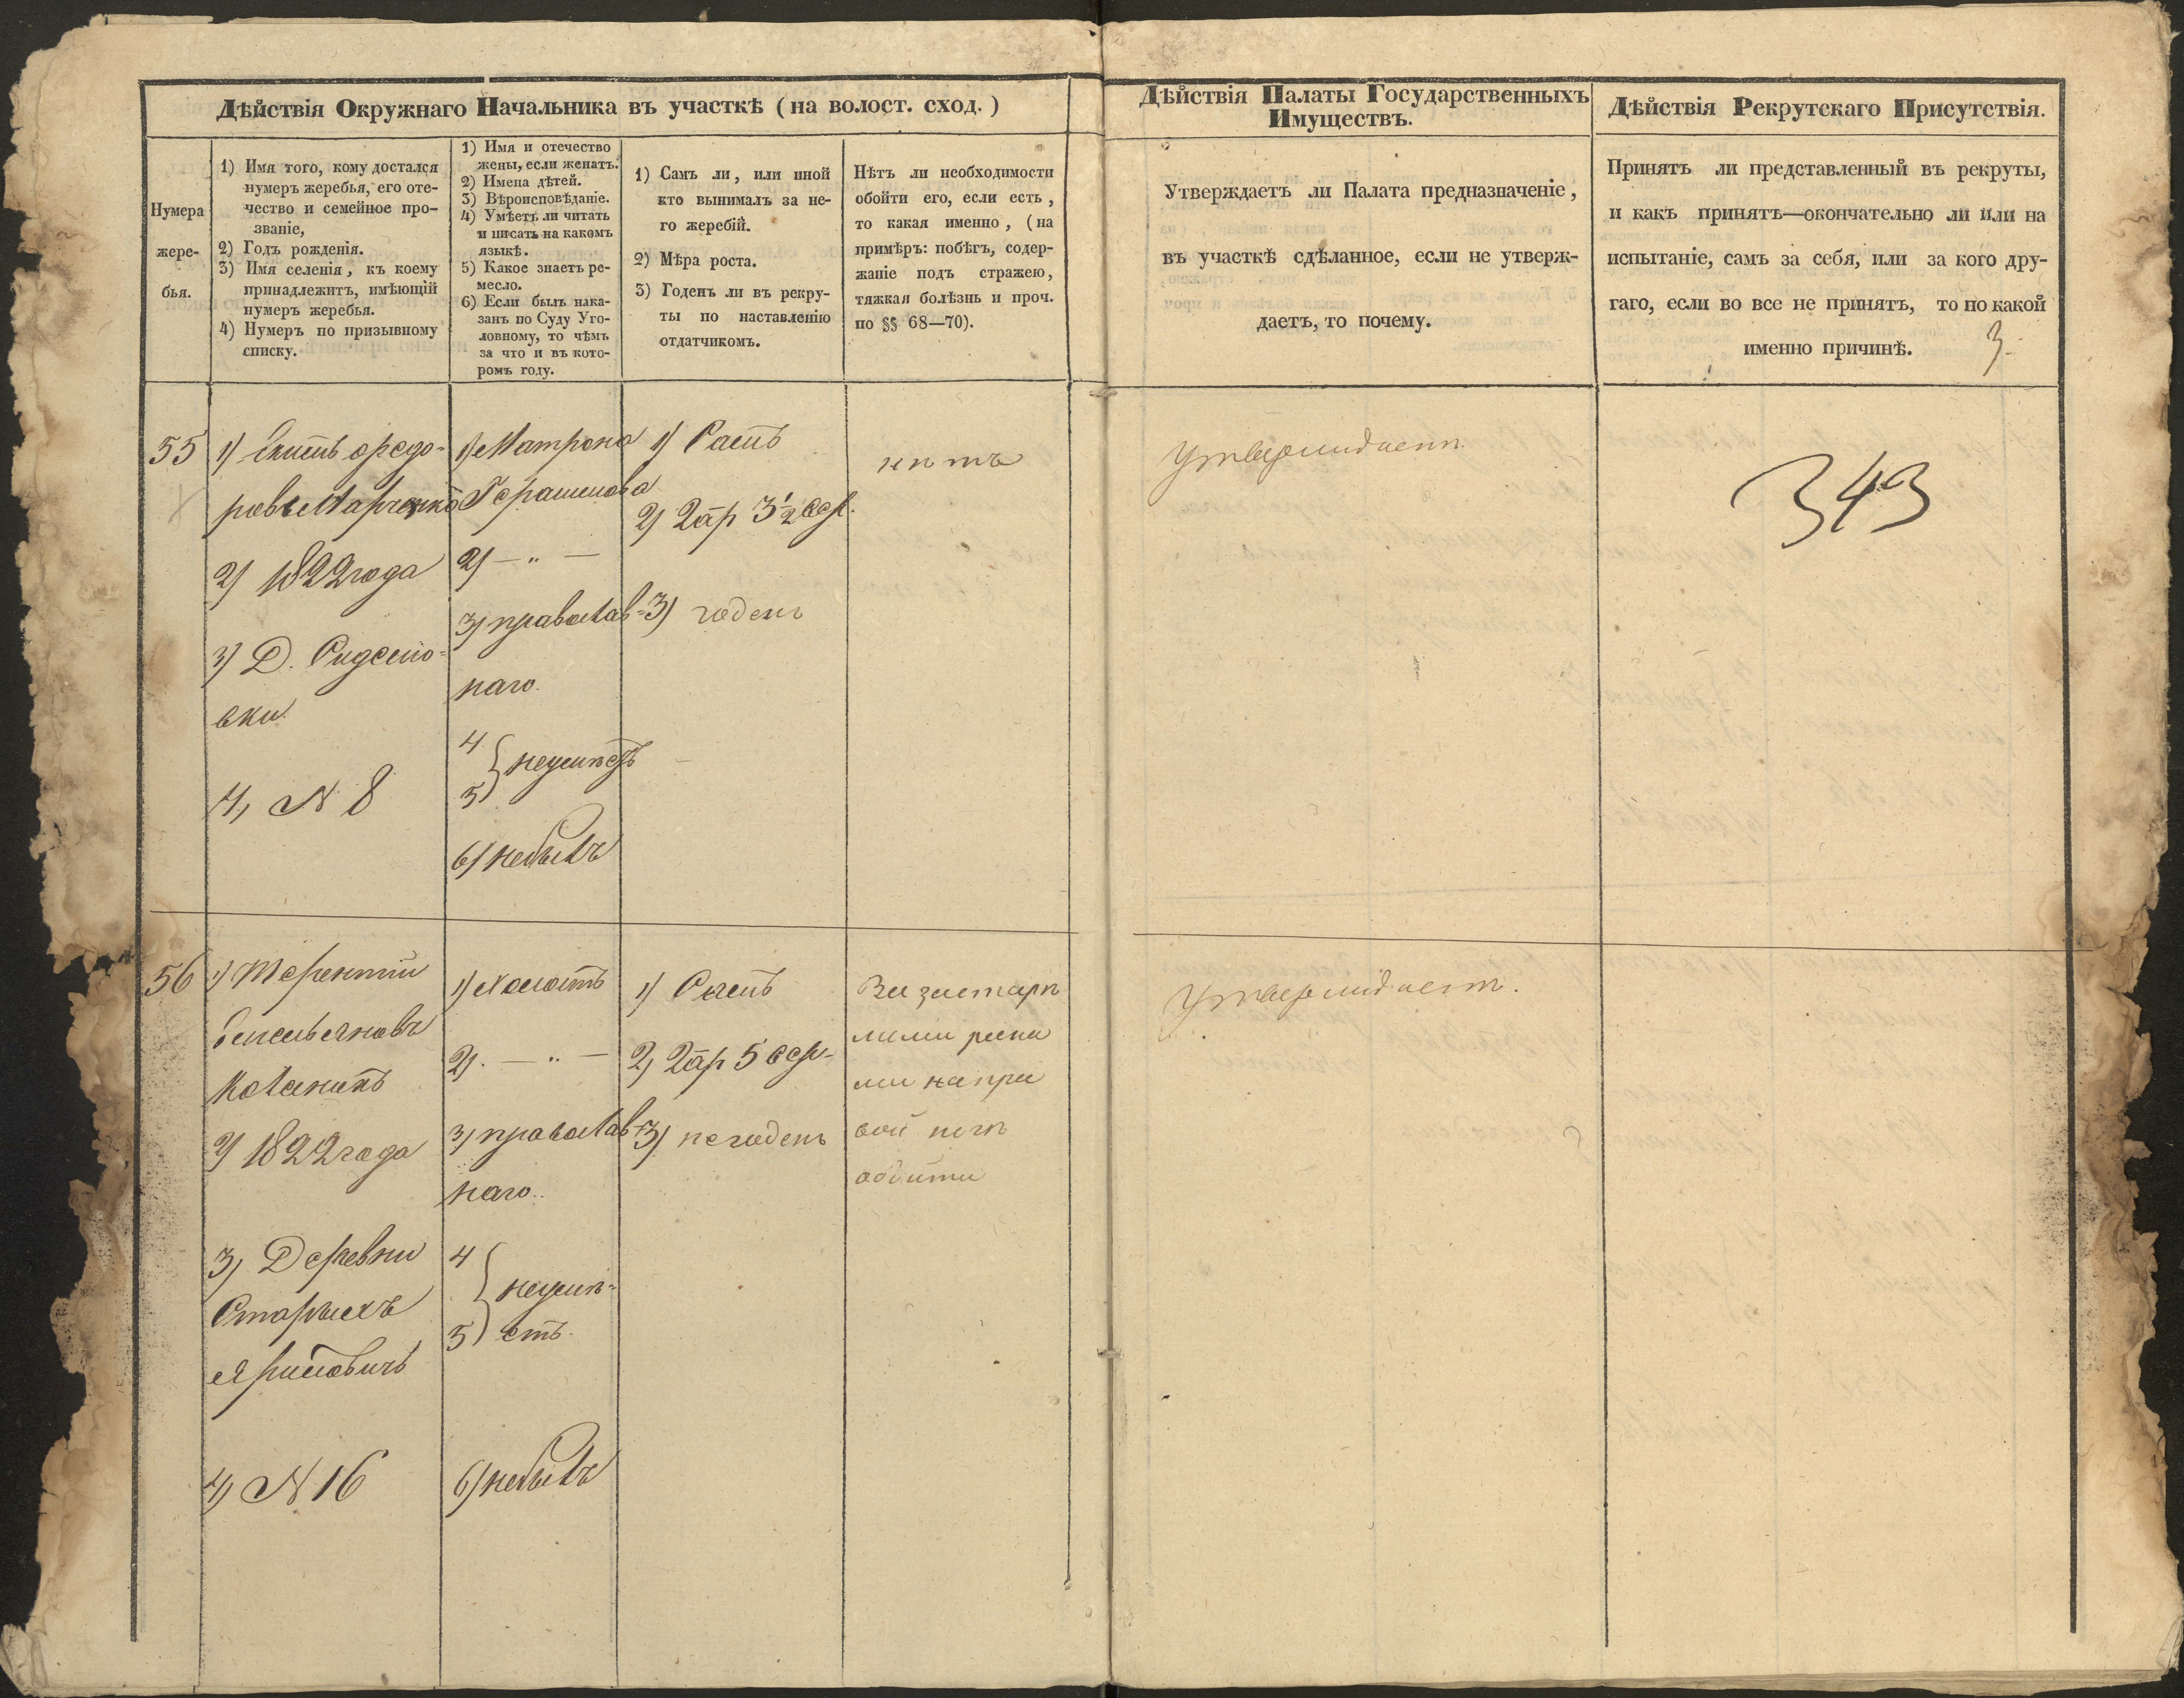 Дѣйствія Окружнаго Начальника въ участкѣ (на волост. сход.)
Нумера
жере-
бья.
1) Имя того, кому достался
нумеръ жеребья, его оте-
чество и семейное про-
званіе,
2) Годъ рожденія.
3) Имя селенія, къ коему
принадлежитъ, имѣющій
нумеръ жеребья.
4) Нумеръ по призывному
списку.
1) Имя и отечество
жены, если женатъ.
2) Имена дѣтей.
3) Вѣроисповѣданіе.
4) Умѣетъ ли читать
и писать на какомъ
языкѣ.
5) Какое знаетъ ре-
месло.
6) Если былъ нака-
занъ по Суду Уго-
ловному, то чѣмъ
за что и въ кото-
ромъ году.
1) Самъ ли, или иной
кто вынималъ за не-
го жеребій.
2) Мѣра роста.
3) Годенъ ли въ рекру-
ты по наставленію
отдатчикомъ.
Нѣтъ ли необходимости
обойти его, если есть,
то какая именно, (на
примѣръ: побѣгъ, содер-
жаніе подъ стражею,
тяжкая болѣзнь и проч.
по §§ 68—70).
Дѣйствія Палаты Государственныхъ
Имуществъ.
Утверждаетъ ли Палата предназначеніе,
въ участкѣ сдѣланное, если не утверж-
даетъ, то почему.
Дѣйствія Рекрутскаго Присутствія.
Принятъ ли представленный въ рекруты,
и какъ принятъ—окончательно ли или на
испытаніе, самъ за себя, или за кого дру-
гаго, если во все не принятъ, то по какой
именно причинѣ.
3
55
1)
ровъ Марченко
2) 1822 года
3) Д.
вки
4) N 8
1) Матрона
Герасимова
2) — „ —
3) православ=
наго.
4
5 } неумѣетъ
6) небылъ
1) Самъ
2) 2 ар 3 1/2 вер.
3) годенъ
нѣтъ
Утверждаетъ.
343
56
1) Терентій
Емельяновъ
2) 1822 года
3) Деревни
Старыхъ
Яриловичъ
4) N 16
1) Холостъ
2) — „ —
3) православ=
наго.
4
5 } неумѣ=
етъ.
6) небылъ
1)
2) 2 ар 5 вер.
3) негоденъ
За застарѣ
лыми рана
ми на пра
вой ногѣ
обойти
Утверждаетъ.